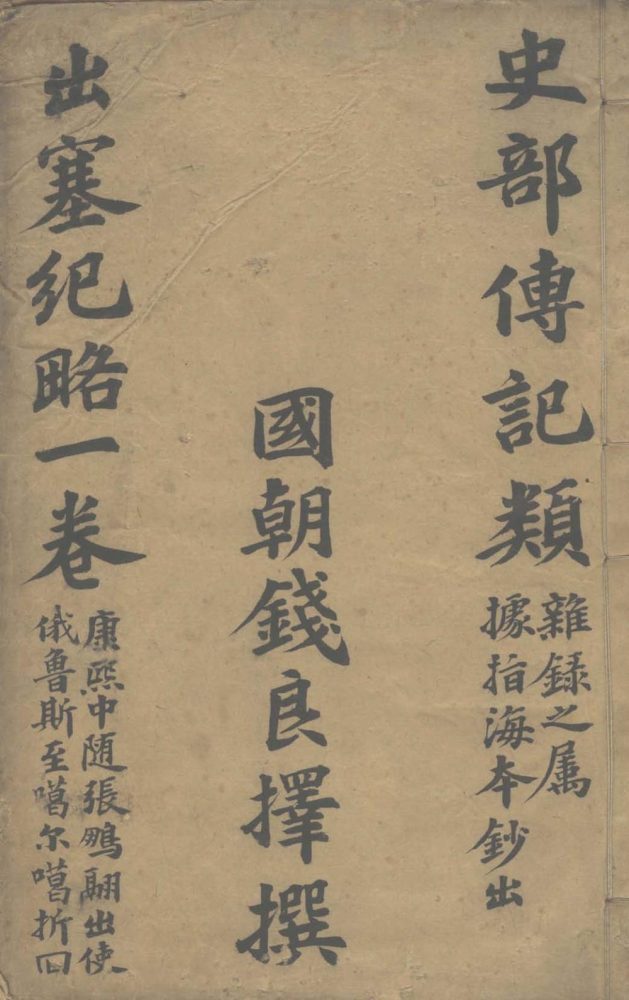 史部傳記類
雜録之属
據指海本鈔出
國朝錢良擇撰
出塞纪略一卷
康熙中随張鵬翮出使
俄鲁斯至噶尔噶折囘